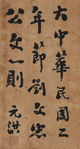 大中華民國二
年節劉文忠
公文一則
元洪